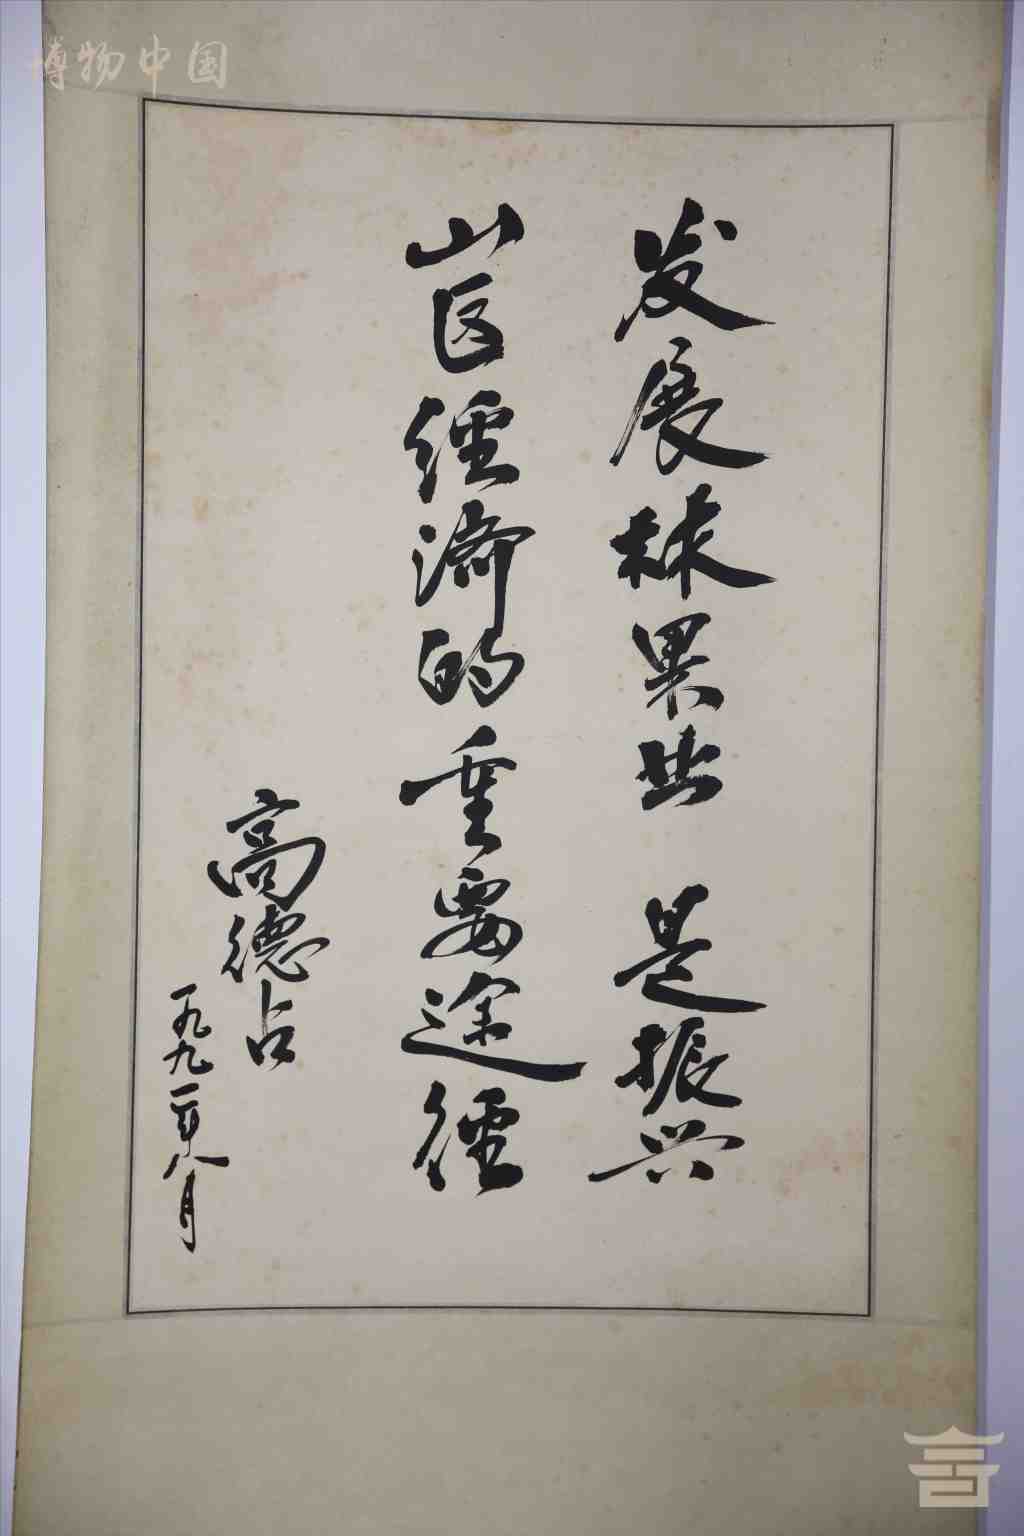 博物中国
发展林果业 是振兴
山区经济的重要途径
高德占
一九九一年八月